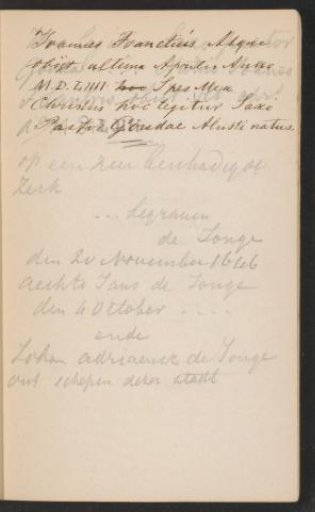 Ioannes Ivanctius
obijt ultima Aprilis Anno
M.D.LIIII hoc Spes Mea
Christus hoc legitur Saxo
Pastor Goudae Alusti natus.
op een zeer benhadigde
Zerk
... begraven
de Jonge
den 20 November 1646
aechte Jans de Jonge
den 4 Ottober ....
ende
Johan adriaensz de Jonge
out schepen deser stadt